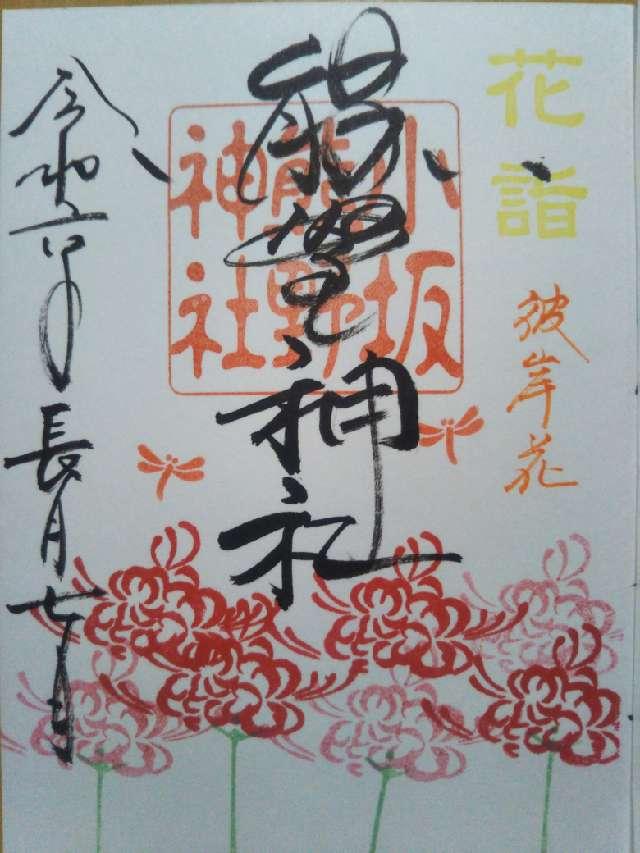 花詣
彼岸花
熊野神社
小坂
熊野
神社
令和六年長月七日